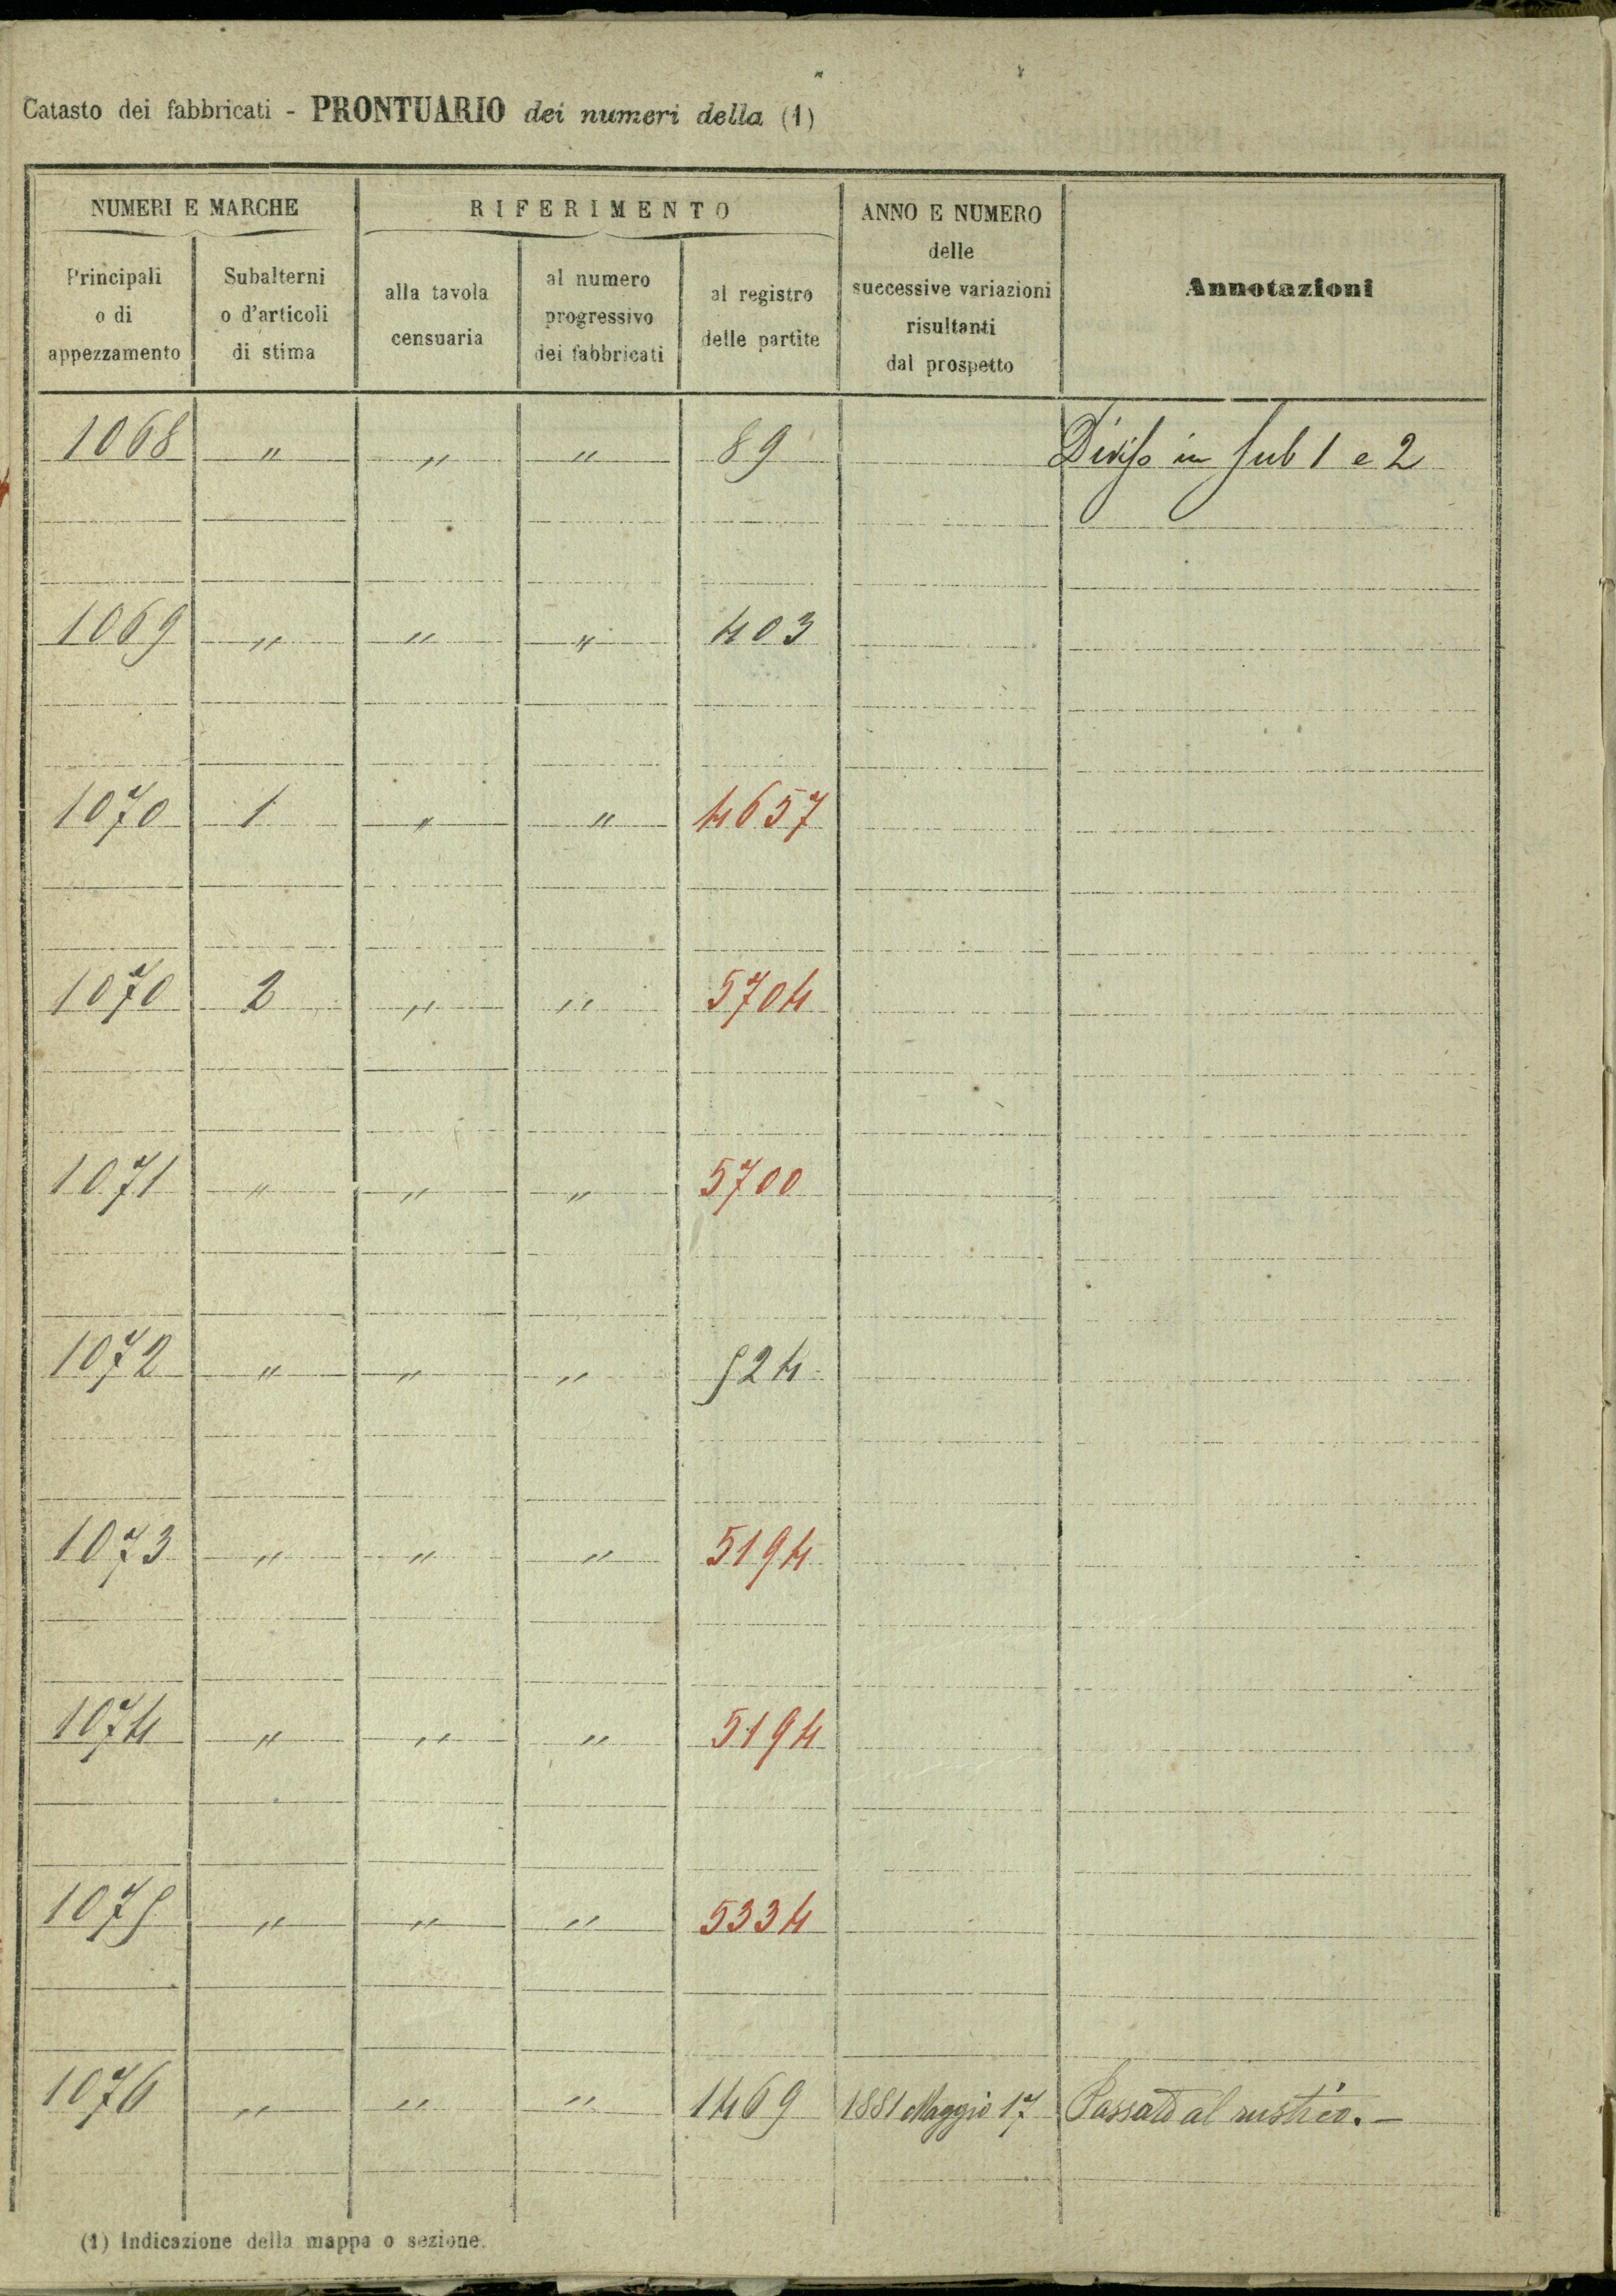 Catasto dei fabbricati - PRONTUARIO dei numeri della (1)
NUMERI E MARCHE
RIFERIMENTO
ANNO E NUMERO
delle
successive variazioni
risultanti
dal prospetto
Annotazioni
Principali
o di
appezzamento
Subalterni
o d'articoli
di stima
alla tavola
censuaria
al numero
progressivo
dei fabbricati
al registro
delle partite
1068 " " " 89 Diviso in sub 1 e 2
1069 " " " 403
1070 1 " " 4657
1070 2 " " 5704
1071 " " " 5700
1072 " " " 524
1073 " " " 5194
1074 " " " 5194
1075 " " " 5334
1076 " " " 1469 1881 Maggio 17 Passato al rustico. —
(1) Indicazione della mappa o sezione.